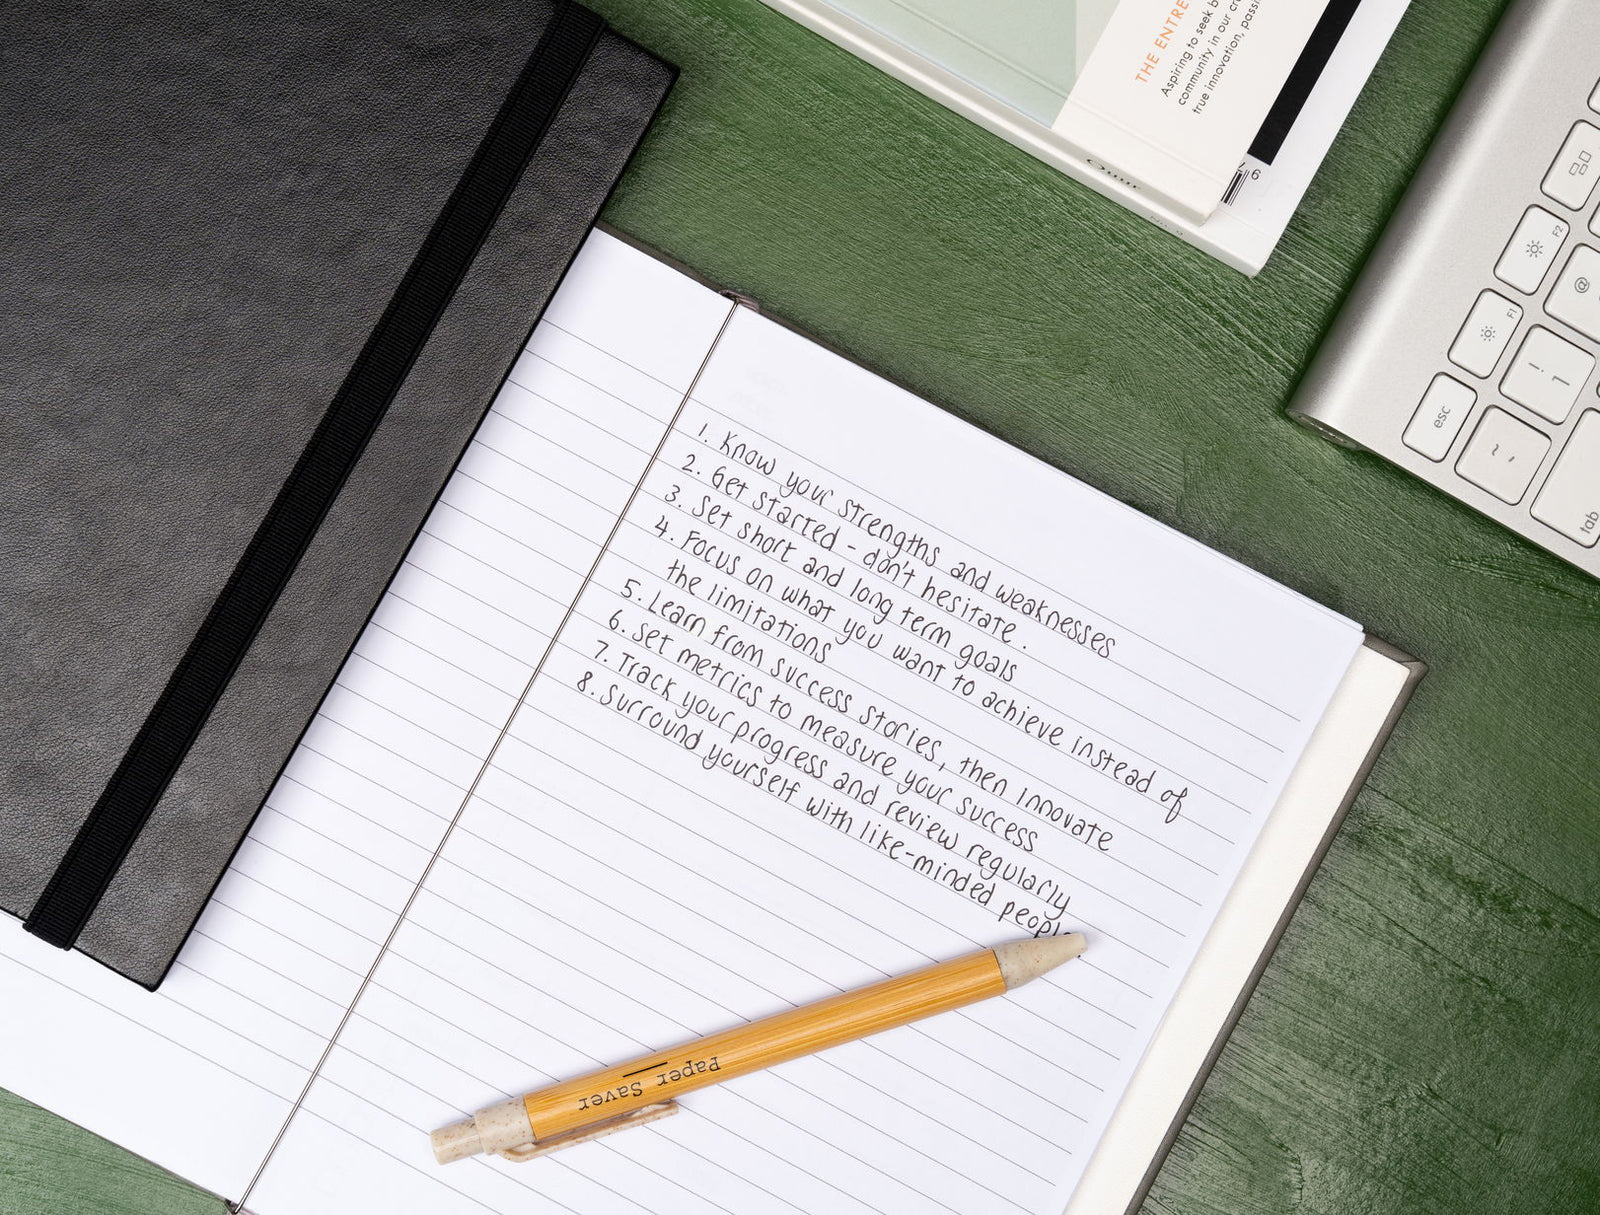 1. Know your strengths and weaknesses
2. Get started - don't hesitate.
3. Set short and long term goals
4. Focus on what you want to achieve instead of
the limitations
5. Learn from success stories, then innovate
6. Set metrics to measure your success
7. Track your progress and review regularly
8. Surround yourself with like-minded
Paper Saver
THE ENTRE
Aspiring to seek b
community in our cr
true innovation, pass
F2
F1
@
esc
tab